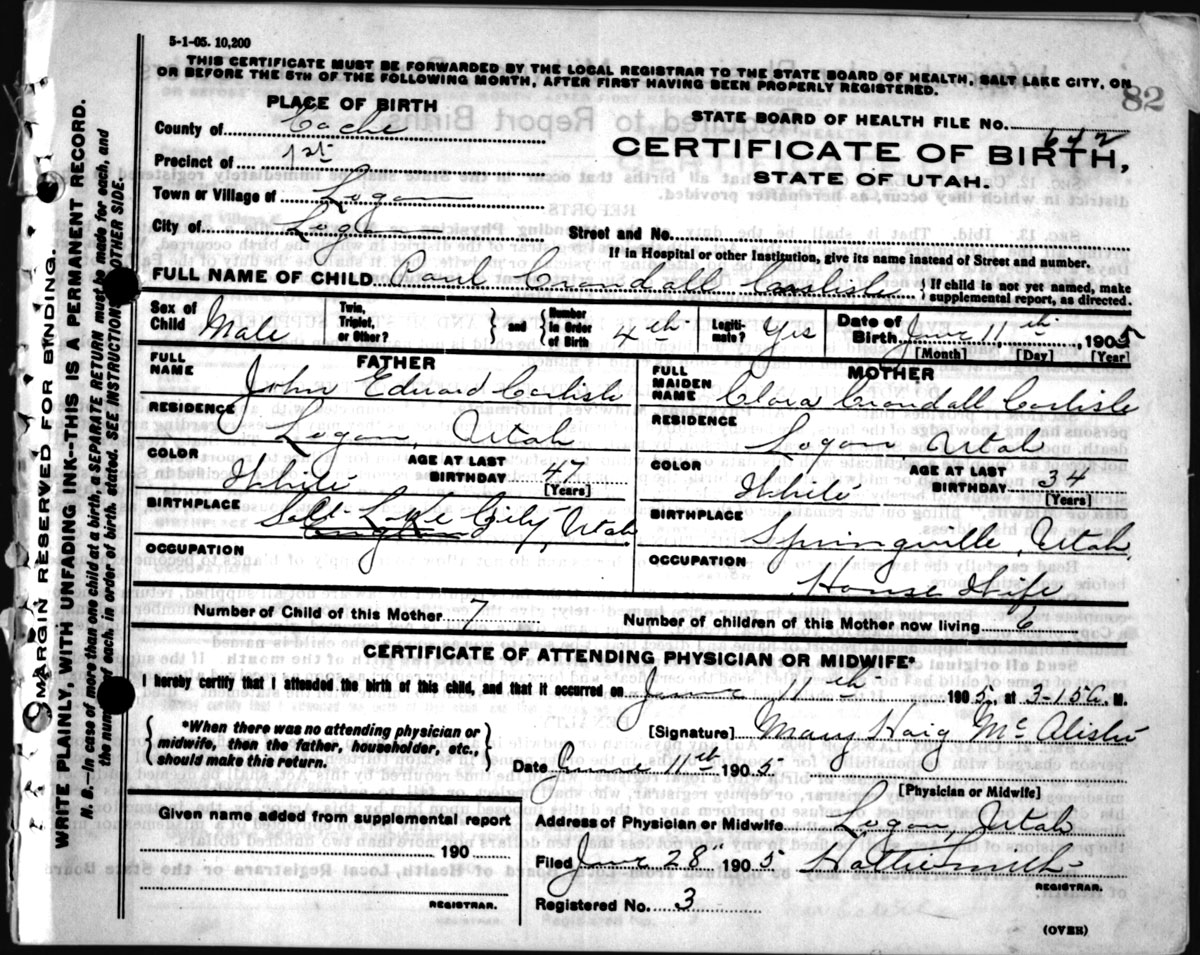 5-1-05. 10,200
THIS CERTIFICATE MUST BE FORWARDED BY THE LOCAL REGISTRAR TO THE STATE BOARD OF HEALTH, SALT LAKE CITY, ON
OR BEFORE THE 5TH OF THE FOLLOWING MONTH, AFTER FIRST HAVING BEEN PROPERLY REGISTERED.
82
PLACE OF BIRTH
STATE BOARD OF HEALTH FILE NO. 642
County of Cache
CERTIFICATE OF BIRTH,
Precinct of 1st
STATE OF UTAH.
Town or Village of Logan
City of Logan
Street and No.
If in Hospital or other Institution, give its name instead of Street and number.
FULL NAME OF CHILD Paul Crandall Carlisle } If child is not yet named, make supplemental report, as directed.
Sex of Child Male Twin, Triplet, or Other? } and { Number in Order of Birth 4th Legiti- mate? Yes Date of Birth June 11th, 1905
[Month] [Day] [Year]
FATHER
MOTHER
FULL NAME John Edward Carlisle
FULL MAIDEN NAME Clora Crandall Carlisle
RESIDENCE Logan, Utah
RESIDENCE Logan, Utah
COLOR White AGE AT LAST BIRTHDAY 47 [Years]
COLOR White AGE AT LAST BIRTHDAY 34 [Years]
BIRTHPLACE Salt Lake City, Utah
England
BIRTHPLACE Springville, Utah
OCCUPATION
OCCUPATION House Wife
Number of Child of this Mother 7
Number of children of this Mother now living 6
CERTIFICATE OF ATTENDING PHYSICIAN OR MIDWIFE*
I hereby certify that I attended the birth of this child, and that it occurred on June 11th 1905 at 3-15 a. M.
{ *When there was no attending physician or midwife, then the father, householder, etc., should make this return. }
[Signature] Mary Haig McAlister
Date June 11th 1905
[Physician or Midwife]
Given name added from supplemental report
Address of Physician or Midwife Logan, Utah
190
Filed June 28 1905 Hattie Smith
REGISTRAR.
REGISTRAR.
Registered No. 3
(OVER)
MARGIN RESERVED FOR BINDING.
WRITE PLAINLY, WITH UNFADING INK--THIS IS A PERMANENT RECORD.
N. B.—In case of more than one child at a birth, a SEPARATE RETURN must be made for each, and
the number of each, in order of birth, stated. SEE INSTRUCTIONS OTHER SIDE.